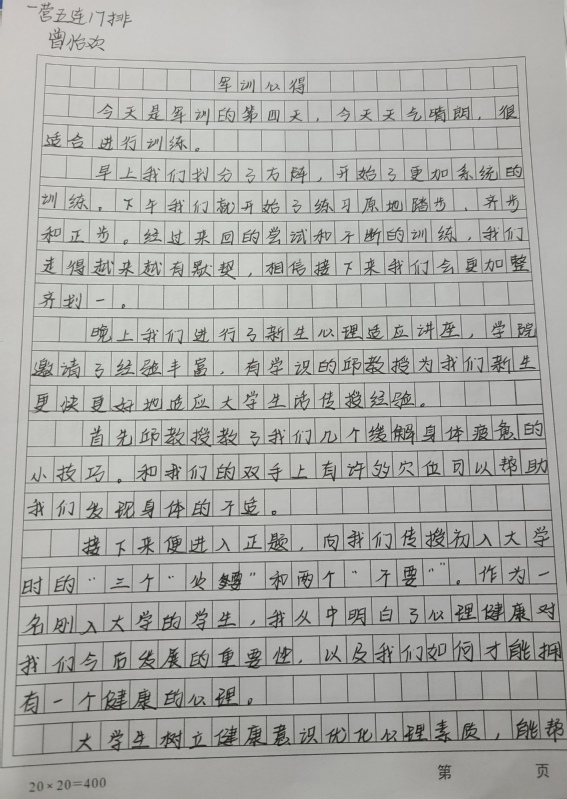 一营五连17排
曾怡欢
军训心得
今天是军训的第四天，今天天气晴朗，很
适合进行训练。
早上我们划分了方阵，开始了更加系统的
训练。下午我们就开始了练习原地踏步、齐步
和正步。经过来回的尝试和不断的训练，我们
走得越来越有默契，相信接下来我们会更加整
齐划一。
晚上我们进行了新生心理适应讲座，学院
邀请了经验丰富，有学识的邱教授为我们新生
更快更好地适应大学生活传授经验。
首先邱教授教了我们几个缓解身体疲惫的
小技巧。和我们的双手上有许多穴位可以帮助
我们发现身体的不适。
接下来便进入正题，向我们传授初入大学
时的“三个“必要”和两个“不要””。作为一
名刚入大学的学生，我从中明白了心理健康对
我们今后发展的重要性，以及我们如何才能拥
有一个健康的心理。
大学生树立健康意识优化心理素质，能帮
20×20=400
第 页